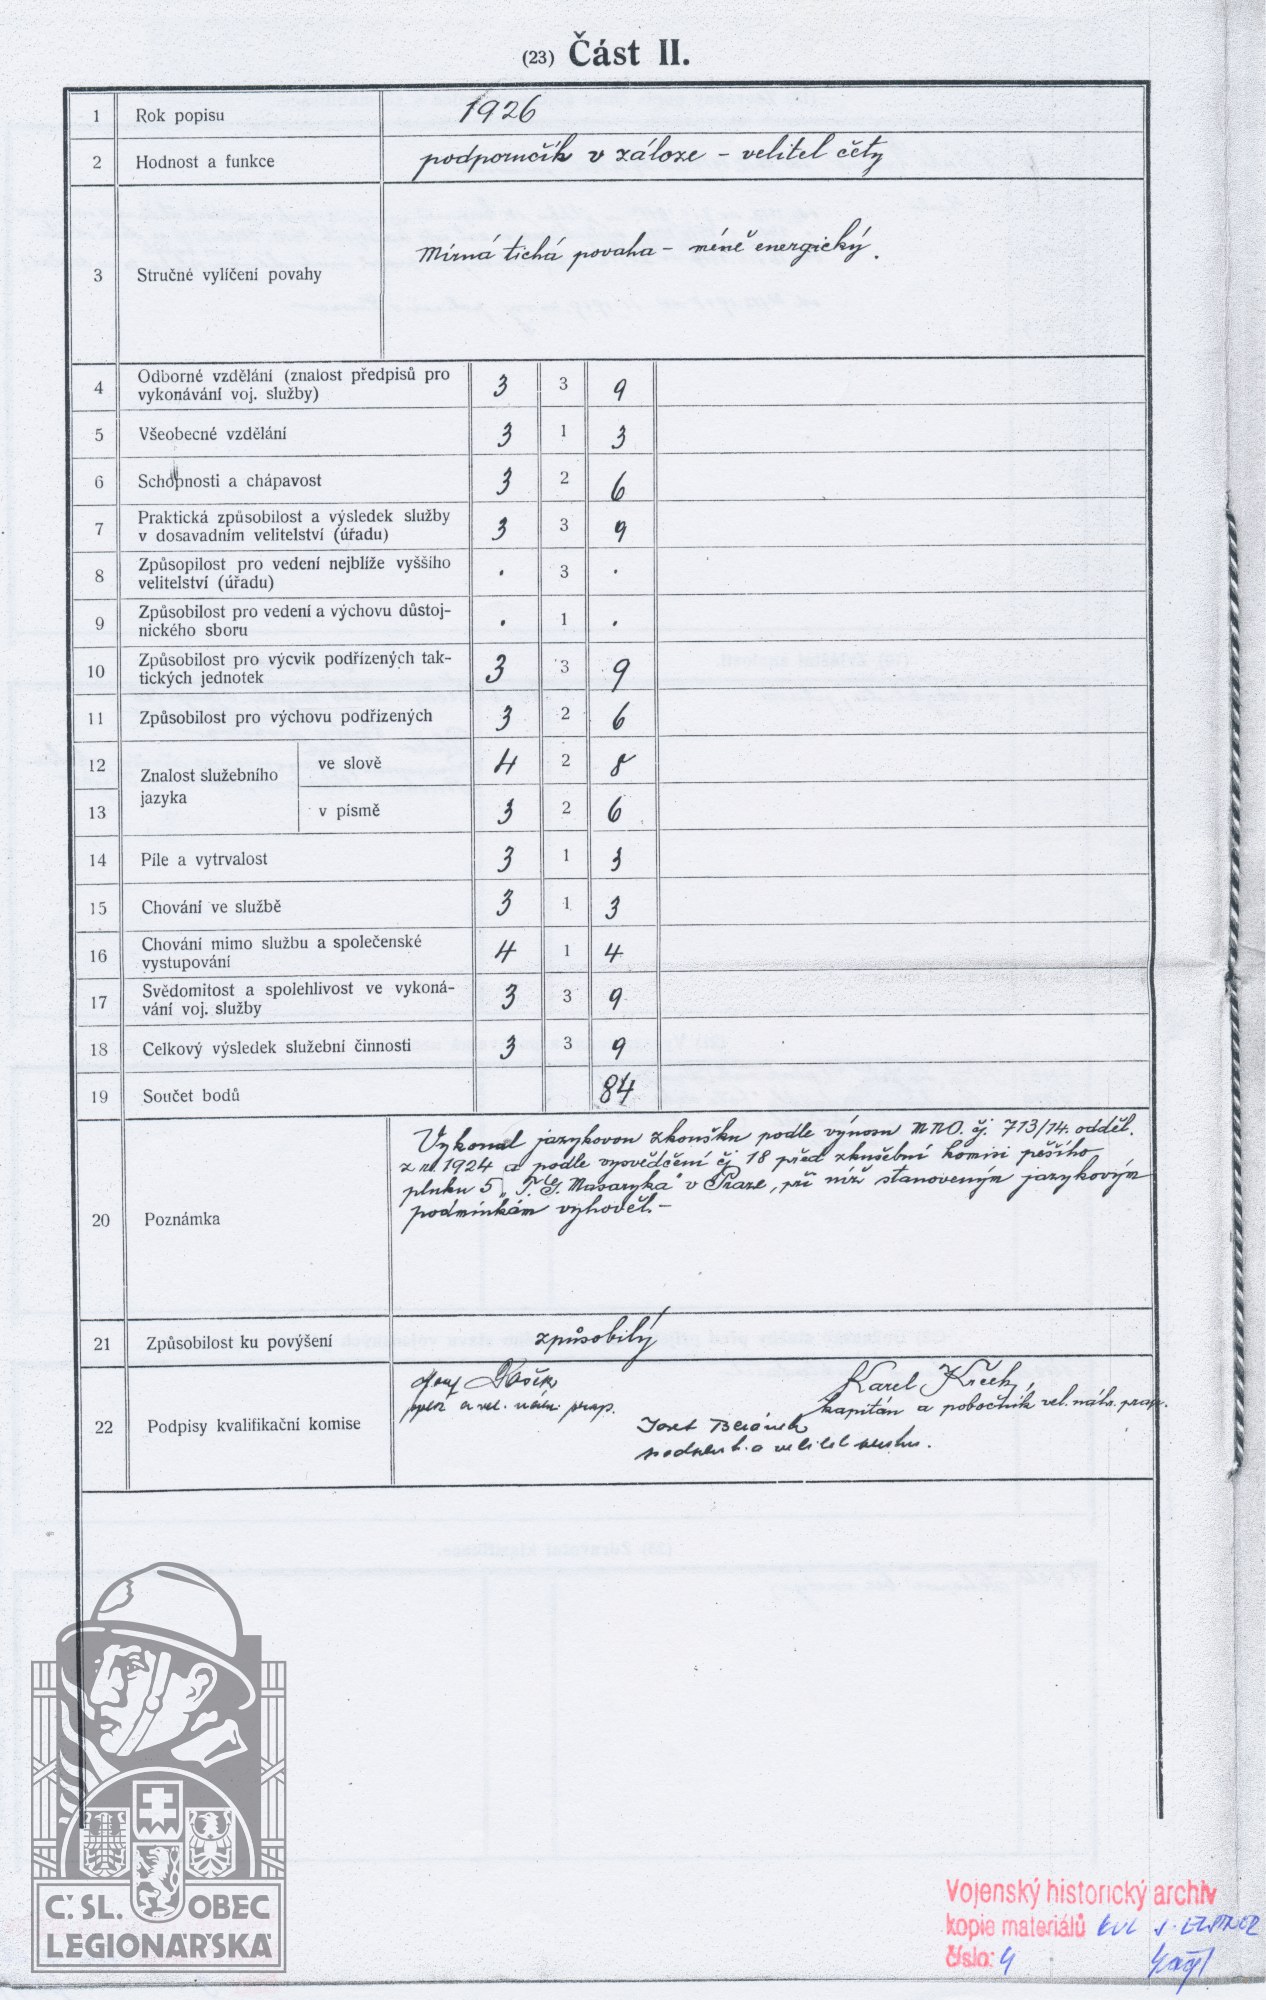 (23) Část II.
1 Rok popisu 1926
2 Hodnost a funkce podporučík v záloze – velitel čety
3 Stručné vylíčení povahy Mírná tichá povaha – méně energický.
4 Odborné vzdělání (znalost předpisů pro
vykonávání voj. služby) 3 3 9
5 Všeobecné vzdělání 3 1 3
6 Schopnosti a chápavost 3 2 6
7 Praktická způsobilost a výsledek služby
v dosavadním velitelství (úřadu) 3 3 9
8 Způsopilost pro vedení nejblíže vyššího
velitelství (úřadu) . 3 .
9 Způsobilost pro vedení a výchovu důstoj-
nického sboru . 1 .
10 Způsobilost pro výcvik podřízených tak-
tických jednotek 3 3 9
11 Způsobilost pro výchovu podřízených 3 2 6
12 Znalost služebního ve slově 4 2 8
13 jazyka v písmě 3 2 6
14 Píle a vytrvalost 3 1 3
15 Chování ve službě 3 1 3
16 Chování mimo službu a společenské
vystupování 4 1 4
17 Svědomitost a spolehlivost ve vykoná-
vání voj. služby 3 3 9
18 Celkový výsledek služební činnosti 3 3 9
19 Součet bodů 84
20 Poznámka
Vykonal jazykovou zkoušku podle výnosu MNO. čj. 713/14. odděl.
z r. 1924 a podle vysvědčení čj 18 před zkušební komisi pěšího
pluku 5 „T. G. Masaryka" v Praze, při níž stanoveným jazykovým
podmínkám vyhověl.–
21 Způsobilost ku povýšení způsobilý
22 Podpisy kvalifikační komise
Karel
kapitán a pobočník vel. náhr. prap.
Josef
a velitel
C. SL. OBEC
LEGIONÁŘSKÁ
Vojenský historický archiv
kopie materiálů
číslo: 4